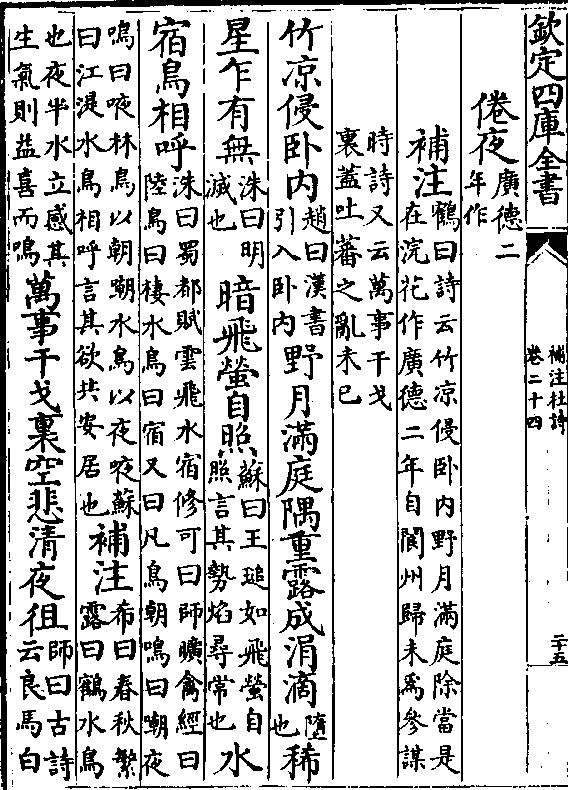 欽定四庫全書
補注杜詩
卷二十四
二十五
倦夜廣德二年作
補注鶴曰詩云竹凉侵卧内野月滿庭除當是在浣花作廣德二年自閬州歸未爲參謀
時詩又云萬事干戈裏蓋吐蕃之亂未已
竹凉侵卧内趙曰漢書引入卧内野月滿庭隅重露成涓滴墮也稀
星乍有無洙曰明滅也暗飛螢自照蘇曰王瑳如飛螢自照言其勢焰尋常也水
宿鳥相呼洙曰蜀都賦雲飛水宿修可曰師曠禽經曰陸鳥曰棲水鳥曰宿又曰凡鳥朝鳴曰嘲夜
鳴曰㖡林鳥以朝嘲水鳥以夜㖡蘇曰江湜水鳥相呼言其欲共安居也補注希曰春秋繁露曰鶴水鳥
也夜半水立感其生氣則益喜而鳴萬事干戈裏空悲清夜徂師曰古詩云良馬白